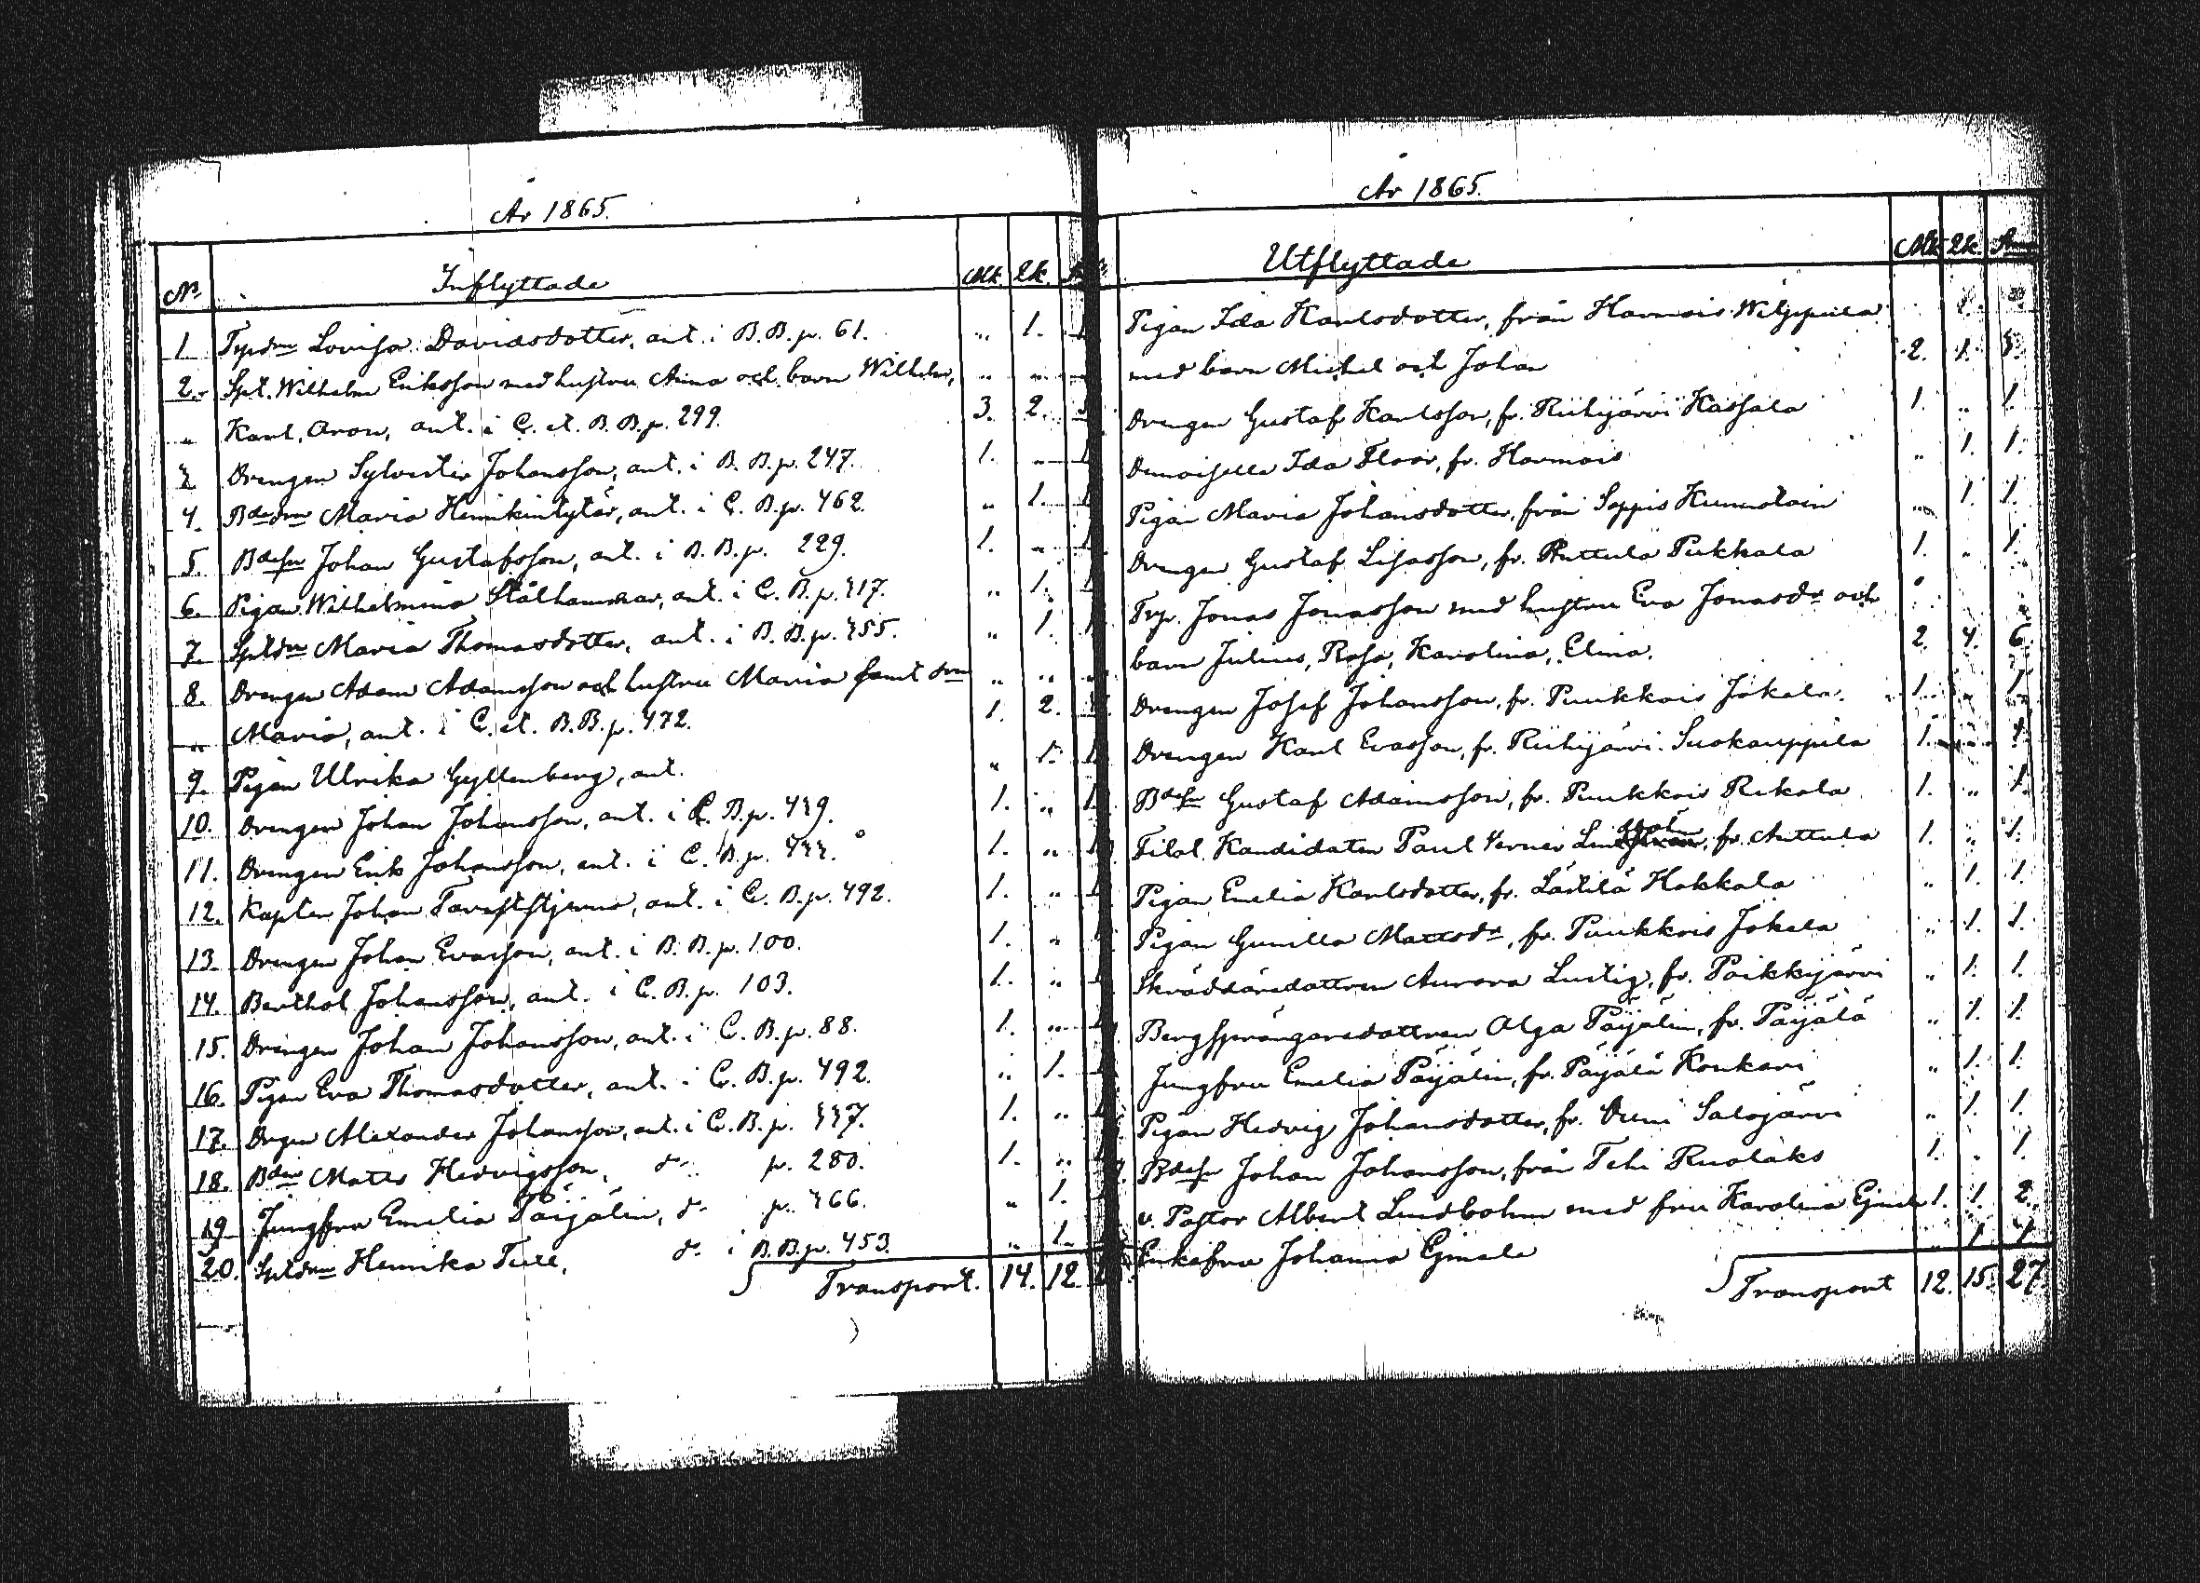 År 1865.
No Inflyttade Mk. Qk.
1 Tpdrn Lovisa Davidsdotter, ant. i B.B.p. 61. " 1. 1
2. Spt. Wilhelm Eriksson med hustru Anna och barn Wilhelm, " "
" Karl, Aron, ant. i C. et. B.B.p. 299. 3. 2.
3 Drengen Sylvester Johansson, ant. i B.B.p. 247. 1. "
4. Bdedrn Maria Henrikintytär, ant. i C.B.p. 462. " 1.
5. Bdesn Johan Gustafsson, ant. i B.B.p. 229. 1. "
6. Pigan Wilhelmina Stålhammar, ant. i C.B.p. 317. " 1.
7. Sptdrn Maria Thomasdotter, ant. i B.B.p. 355. " 1.
8. Drengen Adam Adamsson och hustru Maria samt drn " "
" Maria, ant. i C. et. B.B.p. 472. 1. 2.
9. Pigan Ulrika Gyllenberg, ant. " 1.
10. Drengen Johan Johansson, ant. i C.B.p. 439. 1. "
11. Drengen Erik Johansson, ant. i C.B.p. 433. 1. "
12. Kapten Johan Tavaststjerna, ant. i C.B.p. 492. 1. "
13. Drengen Johan Evasson, ant. i B.B.p. 100. 1. "
14. Berthol Johansson, ant. i C.B.p. 103. 1. "
15. Drengen Johan Johansson, ant. i C.B.p. 88. 1. "
16. Pigan Eva Thomasdotter, ant. i C.B.p. 492. " 1.
17. Drgen Alexander Johansson, ant. i C.B.p. 337. 1. "
18. Bden Matts Hedvigsson, do p. 280. 1. "
19 Jungfru Emelia Päijälin, do p. 366. " 1.
20. Sptdrn Henrika Ture, do i B.B.p. 453. " 1.
Transport. 14. 12.
År 1865.
Utflyttade Mk. Qk.
Pigan Ida Karlsdotter, från Harmois Wiljppula
med barn Michel och Johan 2. 1. 3.
Drengen Gustaf Karlsson, fr. Riihijärvi Kassala 1. " 1.
Demoiselle Ida Floor, fr. Harmois " 1. 1.
Pigan Maria Johansdotter, från Seppis " 1. 1.
Drengen Gustaf Lisasson, fr. Ruttula Pukkala 1. " 1.
Trp. Jonas Jonasson med hustru Eva Jonasdr och
barn Julius, Rosa, Karolina, Elina. 2. 4. 6.
Drengen Josef Johansson, fr. Puukkois Jokela. 1. " 1.
Drengen Karl Evasson, fr. Riihijärvi Suokauppila 1. " 1.
Bdesn Gustaf Adamsson, fr. Puukkois Rekola 1. " 1.
Filol. Kandidaten Paul Verner, fr. Auttula 1. " 1.
Pigan Emelia Karlsdotter, fr. Lästilä Hakkala " 1. 1.
Pigan Gunilla Mattsdr, fr. Puukkois Jokela " 1. 1.
Skräddaredottren Aurora Lustig, fr. Paikkijärvi " 1. 1.
Bergsprängaredottren Olga Päijälin, fr. Päijälä " 1. 1.
Jungfru Emelia Päijälin, fr. Päijälä Konkari " 1. 1.
Pigan Hedvig Johansdotter, fr. Salojärvi " 1. 1.
Bdesn Johan Johansson, från Tehi Ruolaks 1. " 1.
v. Pastor Albert Lindbohm med fru Karolina 1. 1. 2.
Enkefru Johanna " 1. 1
Transport 12. 15. 27